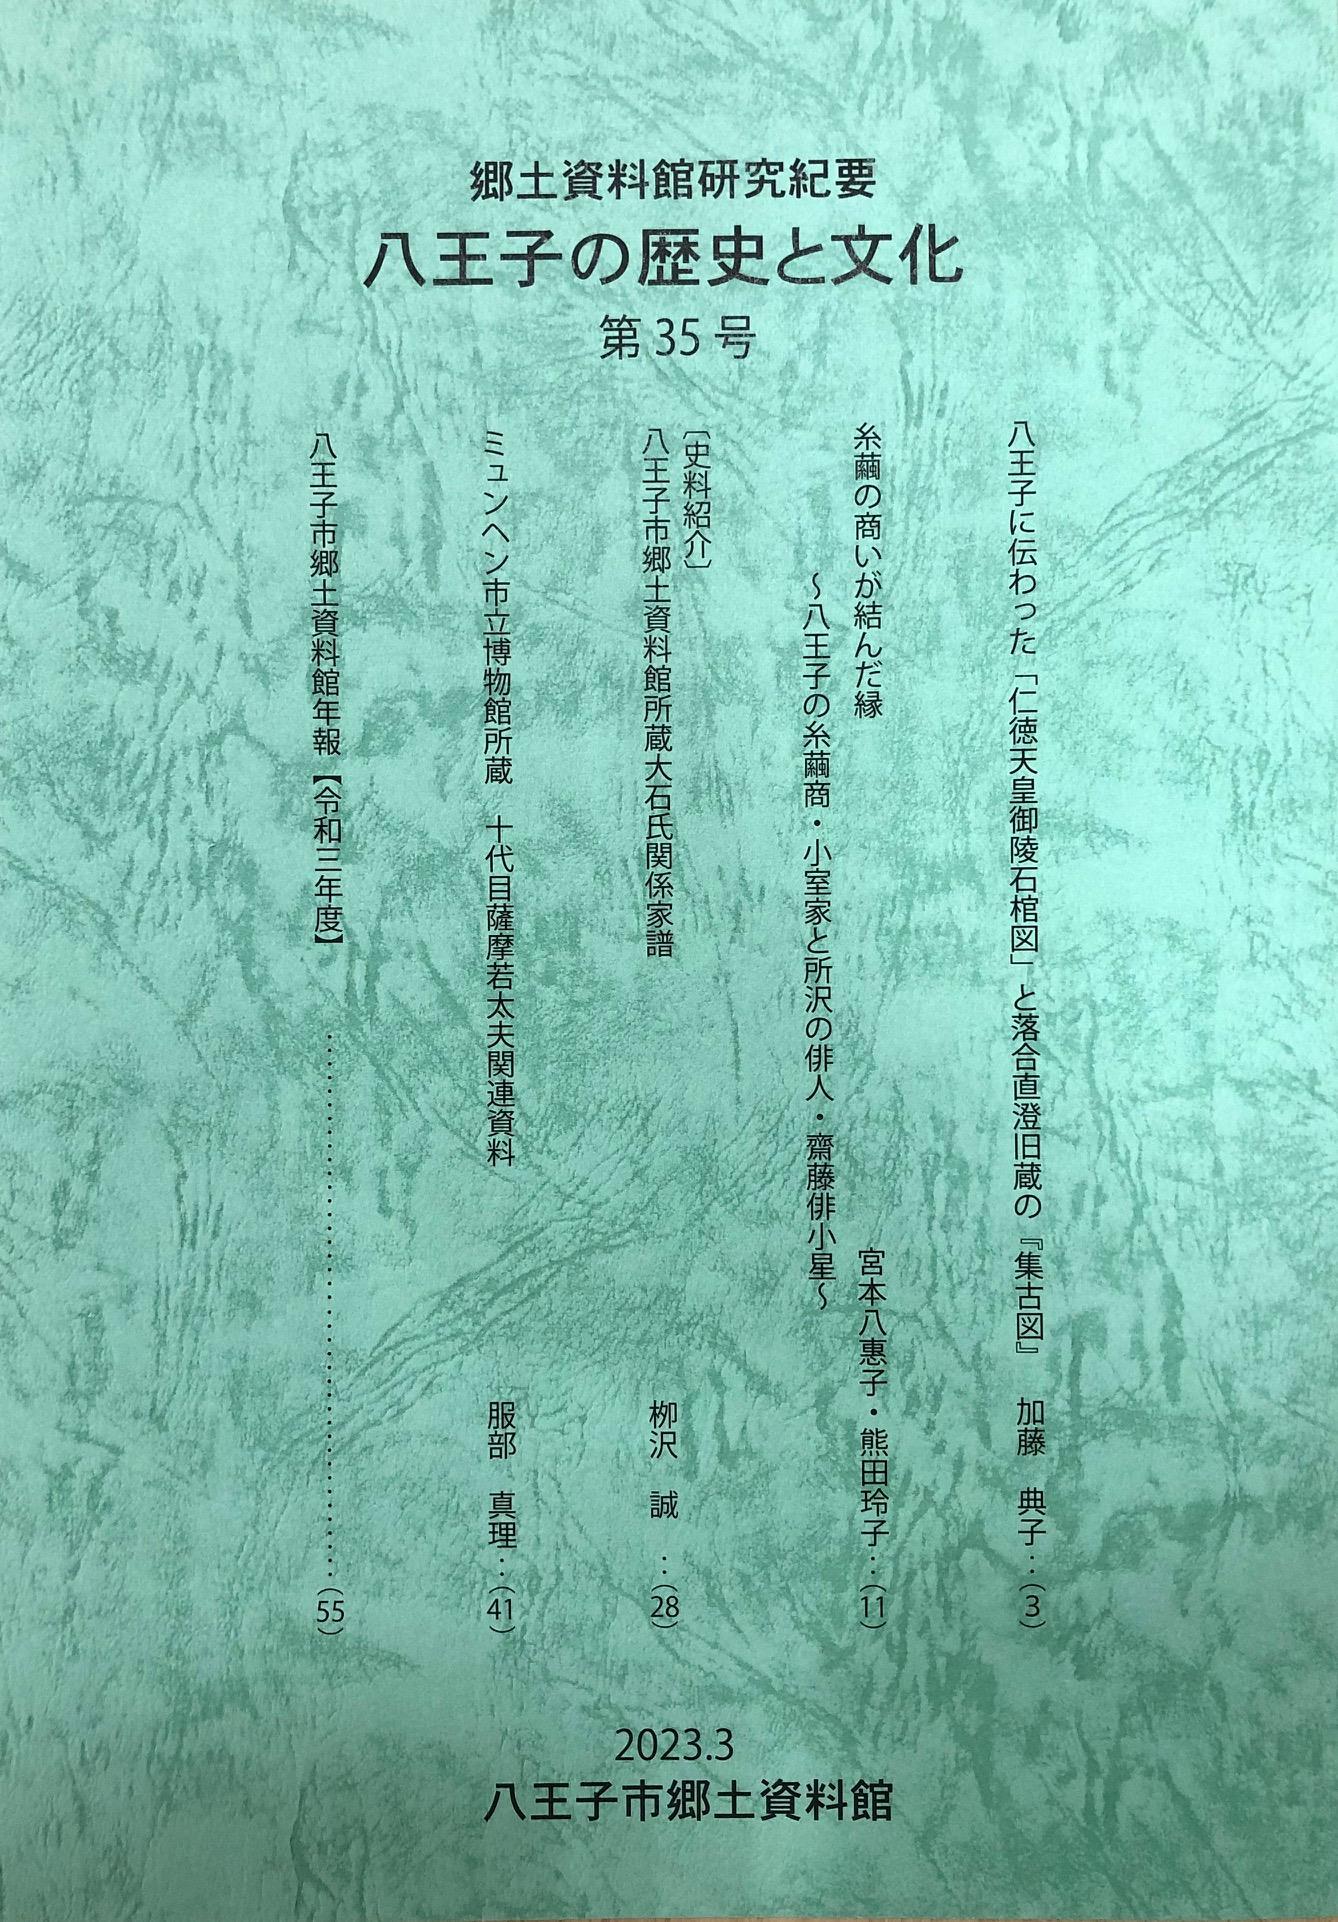 郷土資料館研究紀要
八王子の歴史と文化
第 35 号
八王子に伝わった「仁徳天皇御陵石棺図」と落合直澄旧蔵の『集古図』 加藤 典子‥(3)
糸繭の商いが結んだ縁 宮本八惠子・熊田玲子‥(11)
〜八王子の糸繭商・小室家と所沢の俳人・齋藤俳小星〜
〔史料紹介〕
八王子市郷土資料館所蔵大石氏関係家譜 栁沢 誠 ‥(28)
ミュンヘン市立博物館所蔵 十代目薩摩若太夫関連資料 服部 真理‥(41)
八王子市郷土資料館年報【令和三年度】 ……………………………………(55)
2023.3
八王子市郷土資料館